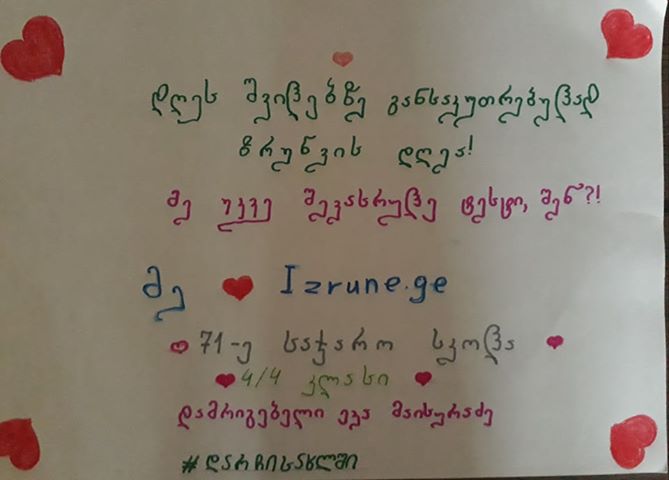 დღეს შვილებზე განსაკუთრებულად
ზრუნვის დღეა!
მე უკვე შევასრულე ტესტი, შენ?!
მე ❤ Izrune.ge
71-ე საჯარო სკოლა
4/4 კლასი
დამრიგებელი ეკა მაისურაძე
#დარჩისახლში